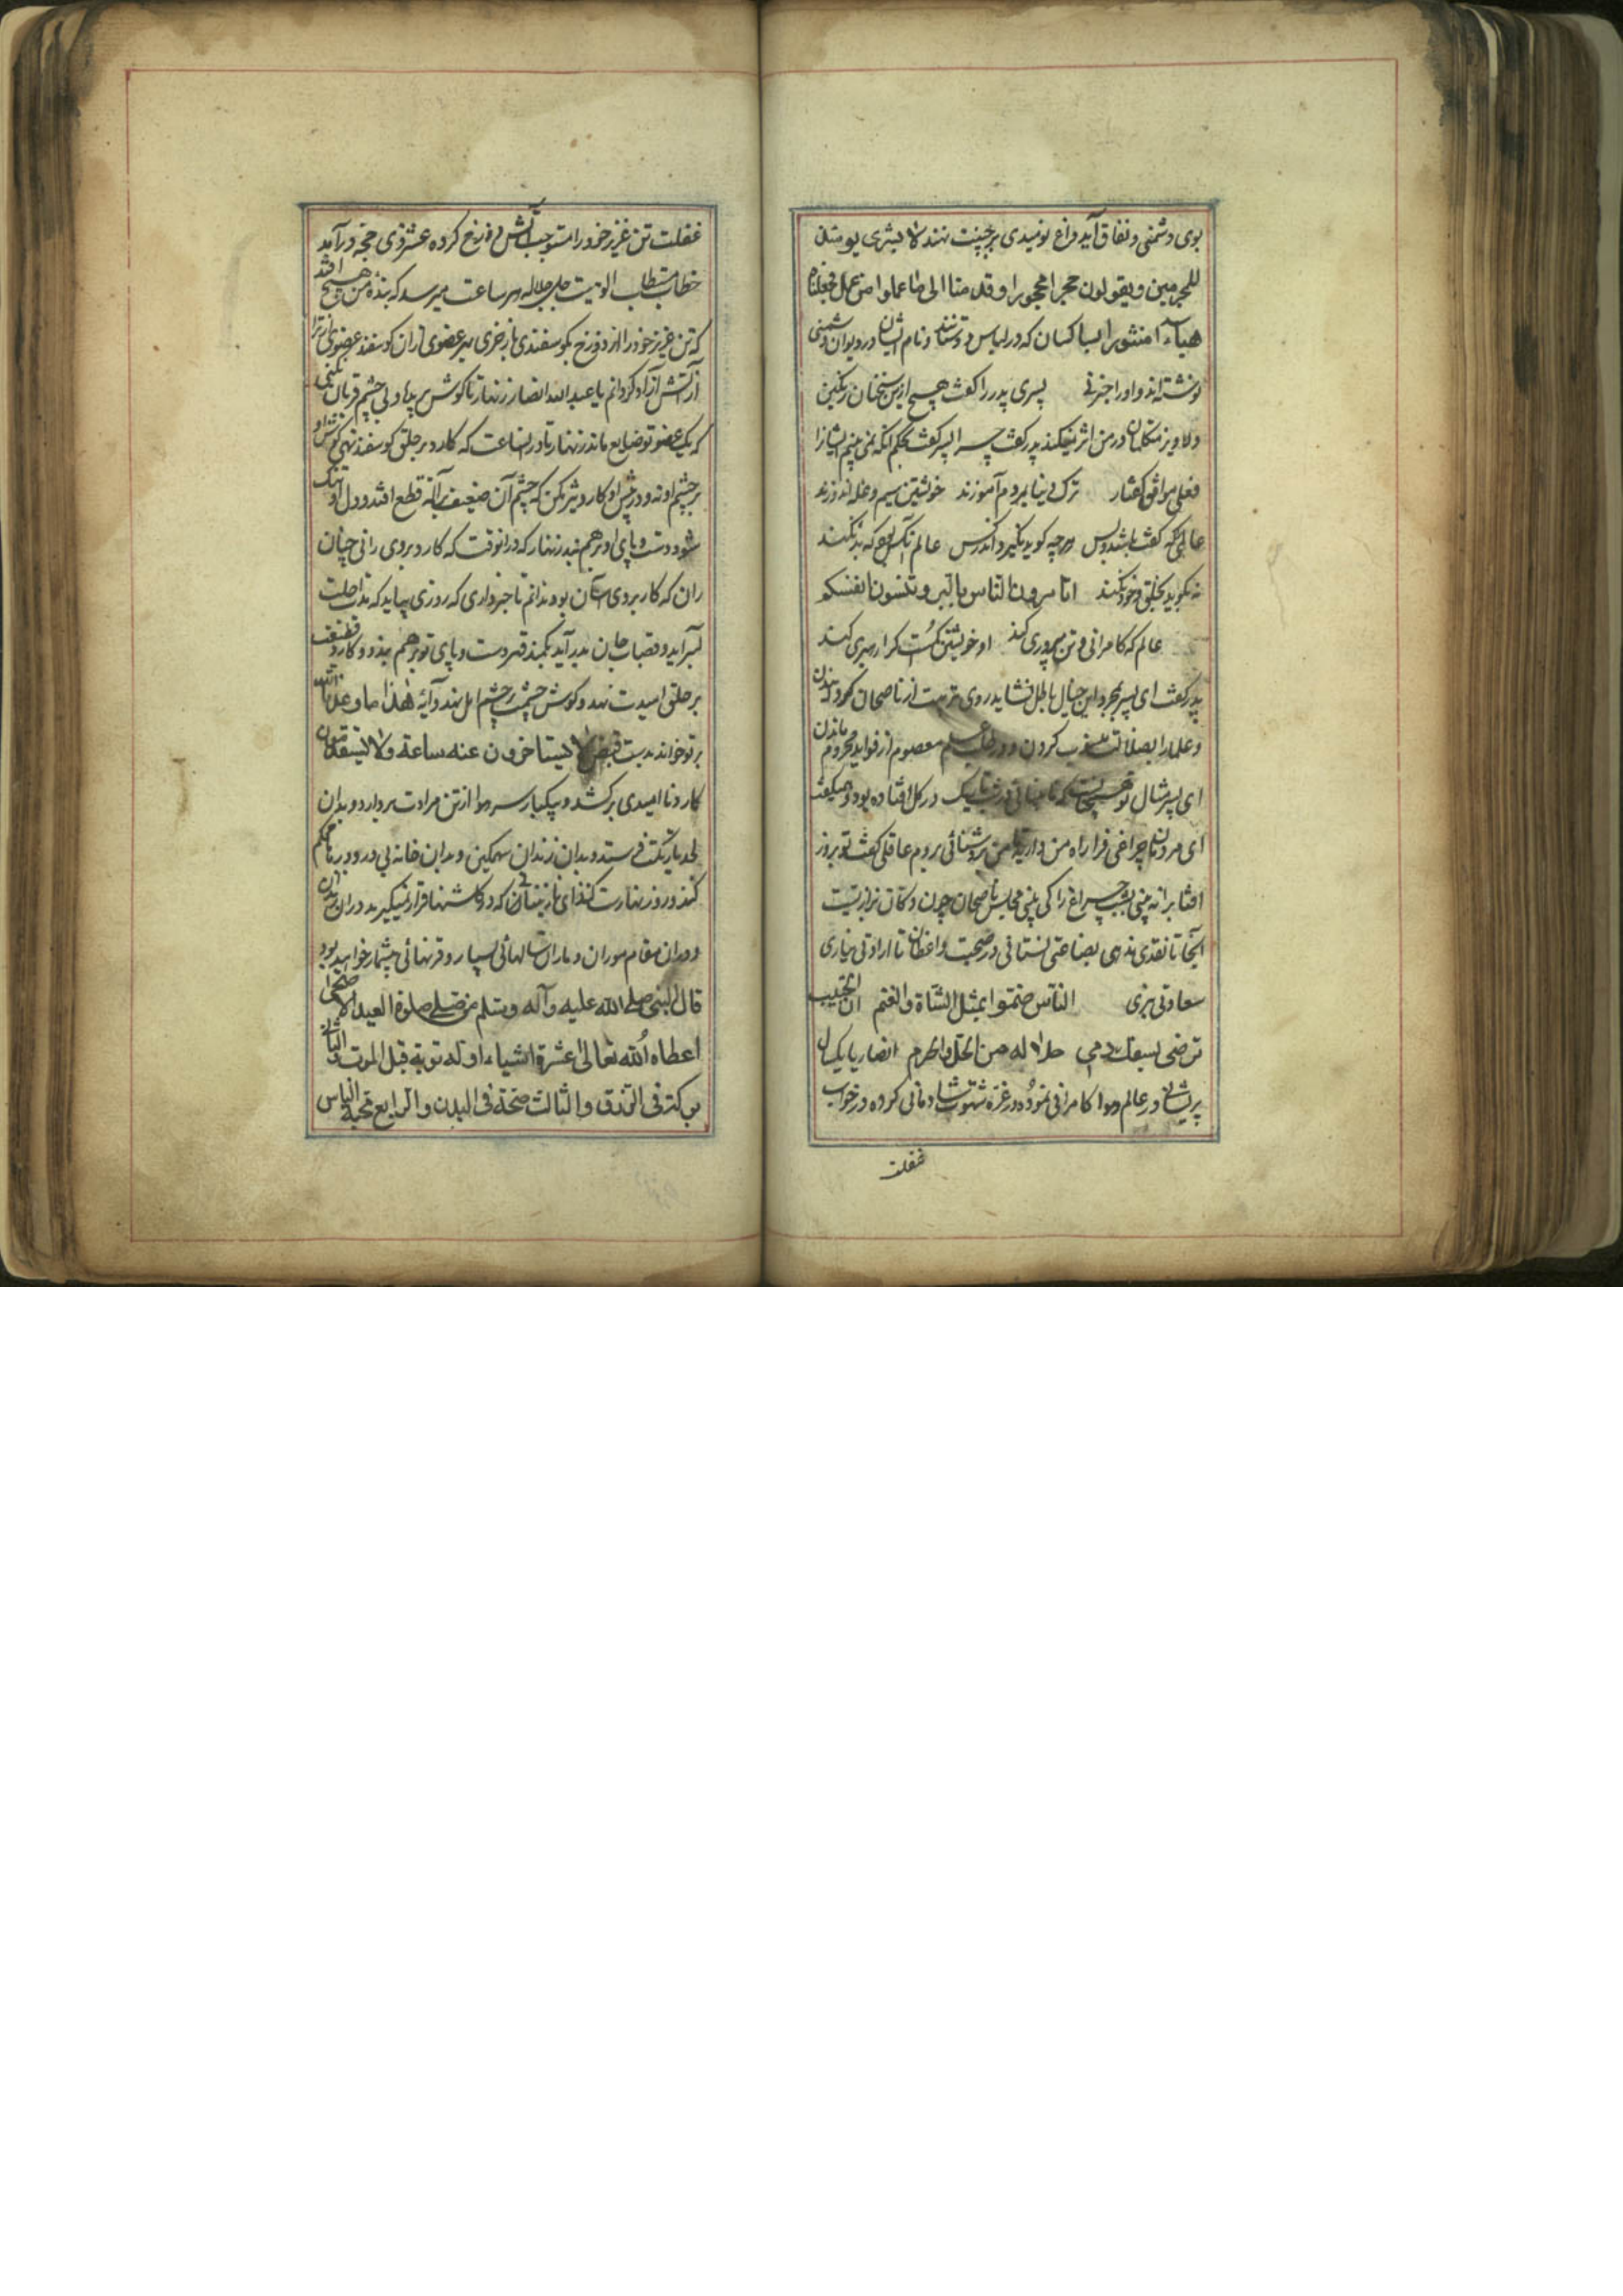 بوی دشمنی و نفاق آید داغ نومیدی بر جبینت نهند لا بشری یومئذ
للمجرمین و یقولون حجرا محجورا و قدمنا الی ما عملوا من عمل فجعلناه
هباء منثورا بسا کسان که در لباس دوستند و نام ایشان در دیوان دشمنی
نوشته‌اند و او را خبر نی پسری پدر را گفت هیچ ازین سخنان رنگین
دلاویز متکلمان در من اثر نمیکند پدر گفت چرا پسر گفت بحکم آنکه نمی بینم ایشانرا
فعلی موافق گفتار ترک دنیا بمردم آموزند خویشتن سیم و غله اندوزند
عالمی که گفت باشد و بس هر چه گوید نگیرد اندر کس عالم آنکس بود که بد نکند
نه بگوید بخلق و خود نکند اتامرون الناس بالبر و تنسون انفسکم
عالم که کامرانی و تن پروری کند او خویشتن گمست کرا رهبری کند
پدر گفت ای پسر بمجرد این خیال باطل نشاید روی تربیت از ناصحان گردانیدن
و علما را بضلالت کردن و در طلب عالم معصوم از فواید محروم ماندن
ای پسر مثال تو همچنانست که نابینائی در شب تاریک در گل افتاده بود و میگفت
ای مردمان چراغی فرا راه من دارید تا من بروشنائی بروم عاقلی گفت تو بروز
آفتاب را نه بینی بشب چراغ را کی بینی مجلس ناصحان چون دکان بزازیست
آنجا تا نقدی ندهی بضاعتی نستانی در صحبت واعظان تا ارادتی نیاری
سعادتی نبری الناس ضحوا بمثل الشاة والغنم ان الحبیب
ترضی بسفك دمی حلاله من الحل والحرم انصار یا یکسال
پریشان در عالم هوا کامرانی نموده در غره شهوت شادمانی کرده در خواب
غفلت
غفلت تن عزیز خود را مستوجب آتش دوزخ کرده عشر ذی حجه درآمد
خطاب مستطاب الوهیت جل جلاله هر ساعت میرسد که بنده من هیچ افتد
که تن عزیز خود را از دوزخ بگوسفندی باز خری بهر عضوی ازان گوسفند عضوی از ترا
از آتش آزاد گردانم یا عبدالله انصار زنهار تا گوش بریده و بی چشم قربان نکنی
که یک عضو تو ضایع ماند زنهار تا در آن ساعت که کارد بر حلق گوسفند نهی گوش او
بر چشم او نه و در پیش او کارد تیز مکن که چشم آن ضعیف بر آلة قطع افتد و دل او تنگ
شود دست و پای او بر هم بند زنهار که در آنوقت که کارد بر وی رانی چنان
ران که کار بر وی آسان بود ندانم تا خبر داری که روزی بیاید که مدت اجلت
بسر آید و قصاب جان بدر آید بکمند قهر دست و پای تو بر هم بندد و کارد قطیعت
بر حلق امیدت نهد و گوش خشمت بر چشم امل نهد و آیه هذا ما وعدنا الله
بر تو خواند بدست قبض لا یستاخرون عنه ساعة ولا یستقدمون
کارد ناامیدی برکشد و بیکبار سر هوا از تن مرادت بردارد و بدان
لحد تاریکت فرستد و بدان زندان سهمگین و بدان خانه بی در و دربان محکم
کند و روز بهارت کند ای نازنینانی که در گلشنها قرار نمیگیرید در ان زندان
و دران مقام موران و ماران سالهائی بسیار و قرنهائی بیشمار خواهید بود
قال النبی صلی الله علیه و آله و سلم من صلی صلوة العید الاضحی
اعطاه الله تعالی عشرة اشیاء اوله توبة قبل الموت والثانی
برکة فی الرزق والثالث صحة فی البدن والرابع محبة الناس